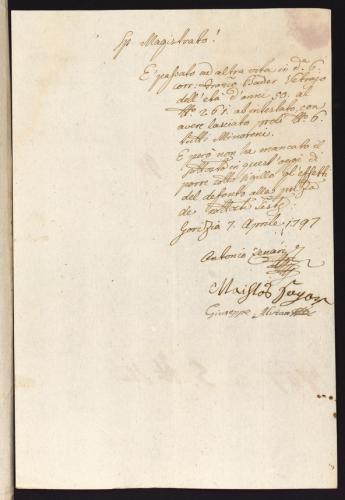 Sp. Magistrato!
E' passato ad altra vita in d.a 6.
corr. Bader Vetrajo
dell'età d'anni 50. al
N. 261. ab intestato, con
avere lasciato proli N. 6
tutti Minoreni.
E però non ha mancato il
in quest'oggi di
porre sotto sigillo gl'effetti
del defonto alla
de
Gorizia 7. Aprile 1797
Antonio
Giuseppe